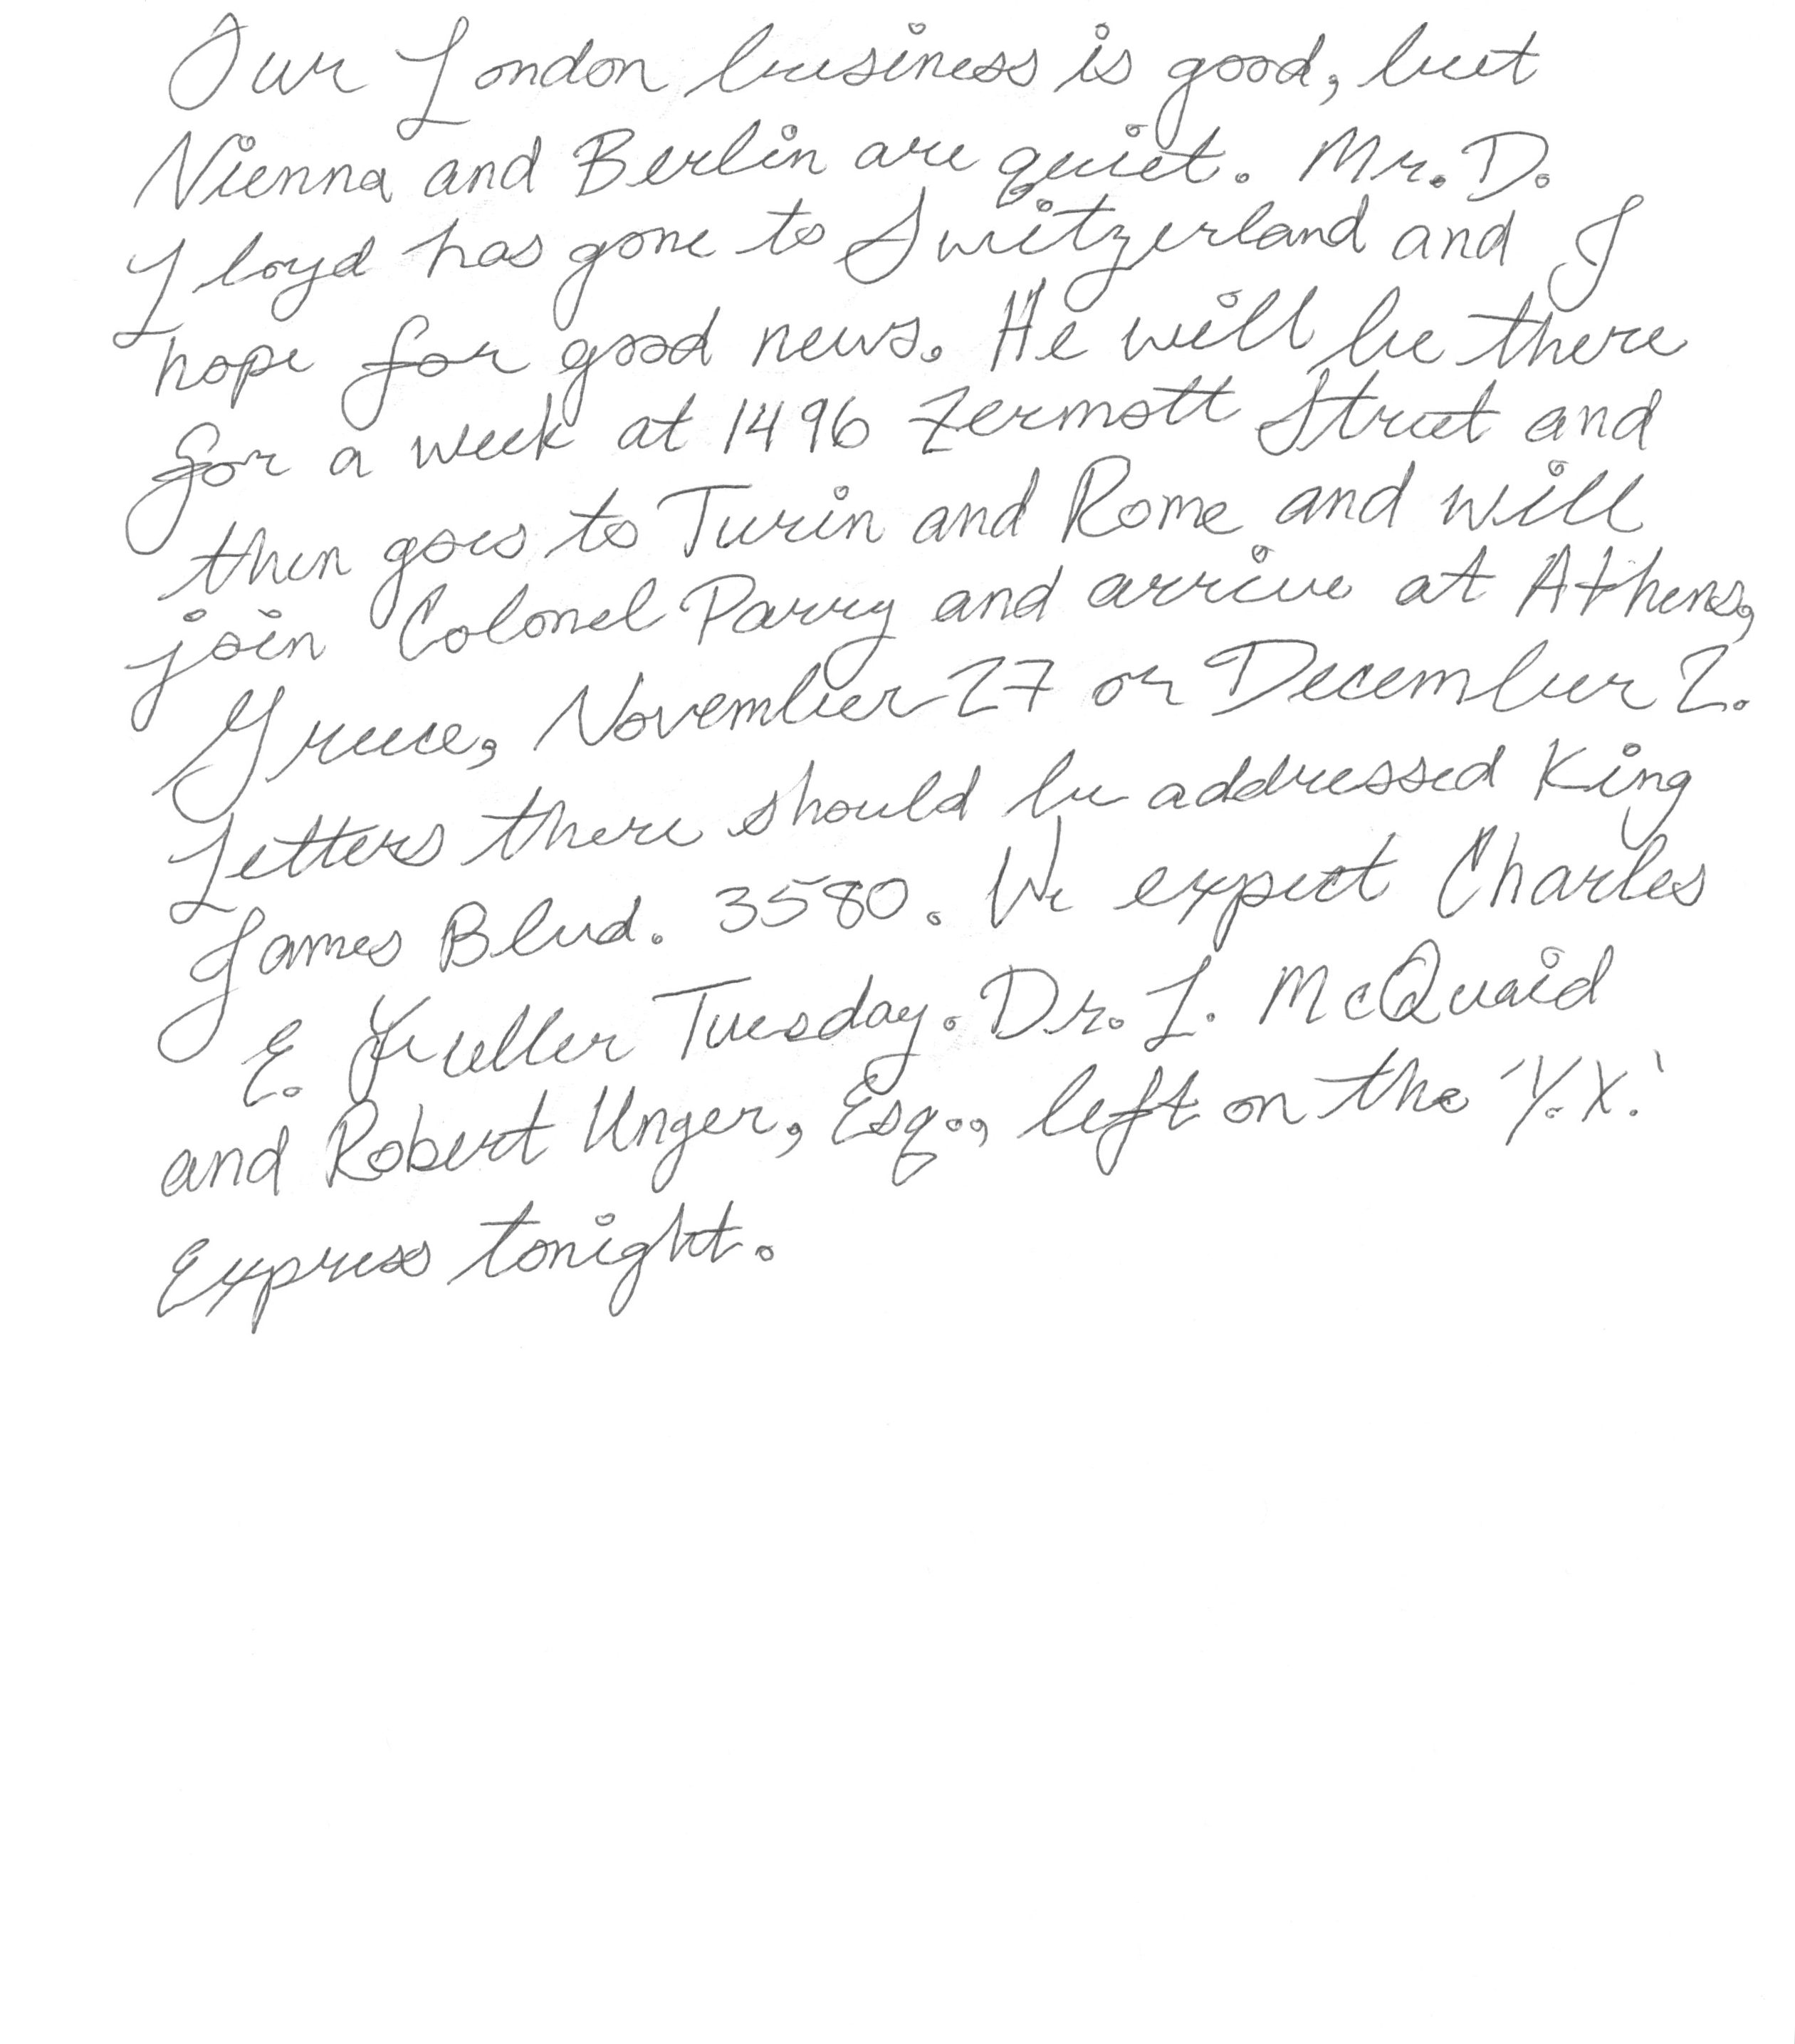 Our London business is good, but
Vienna and Berlin are quiet. Mr. D.
Lloyd has gone to Switzerland and I
hope for good news. He will be there
for a week at 1496 Zermott Street and
then goes to Turin and Rome and will
join Colonel Parry and arrive at Athens,
Greece, November 27 or December 2.
Letters there should be addressed King
James Blvd. 3580. We expect Charles
E. Fuller Tuesday. Dr. L. McQuaid
and Robert Unger, Esq., left on the 'Y.X.'
Express tonight.